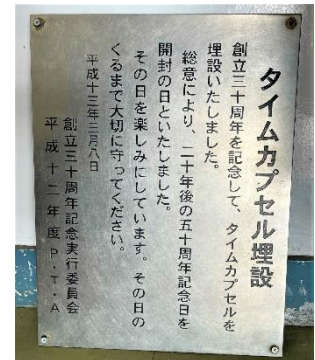 タイムカプセル埋設
創立三十周年を記念して、タイムカプセルを
埋設いたしました。
総意により、二十年後の五十周年記念日を
開封の日といたしました。
その日を楽しみにしています。その日の
くるまで大切に守ってください。
平成十三年三月八日
創立三十周年記念実行委員会
平成十二年度P・T・A